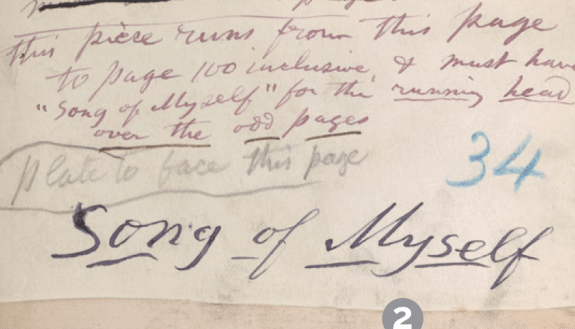 this piece runs from this page
to page 100 inclusive, & must have
"Song of Myself" for the running head
over the odd pages
plate to face this page
34
Song of Myself
2